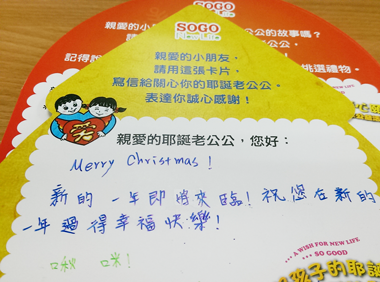 SOGO
親愛的
公公的故事嗎?
記得說
挑選禮物。
SOGO
親愛的小朋友,
請用這張卡片,
寫信給關心你的耶誕老公公,
表達你誠心感謝!
親愛的耶誕老公公,您好:
Merry Christmas!
新的一年即將來臨!祝您在新的
一年過得幸福快樂!
啾咪!
A WISH FOR NEW LIFE
... SO GOOD
孩子的耶誕